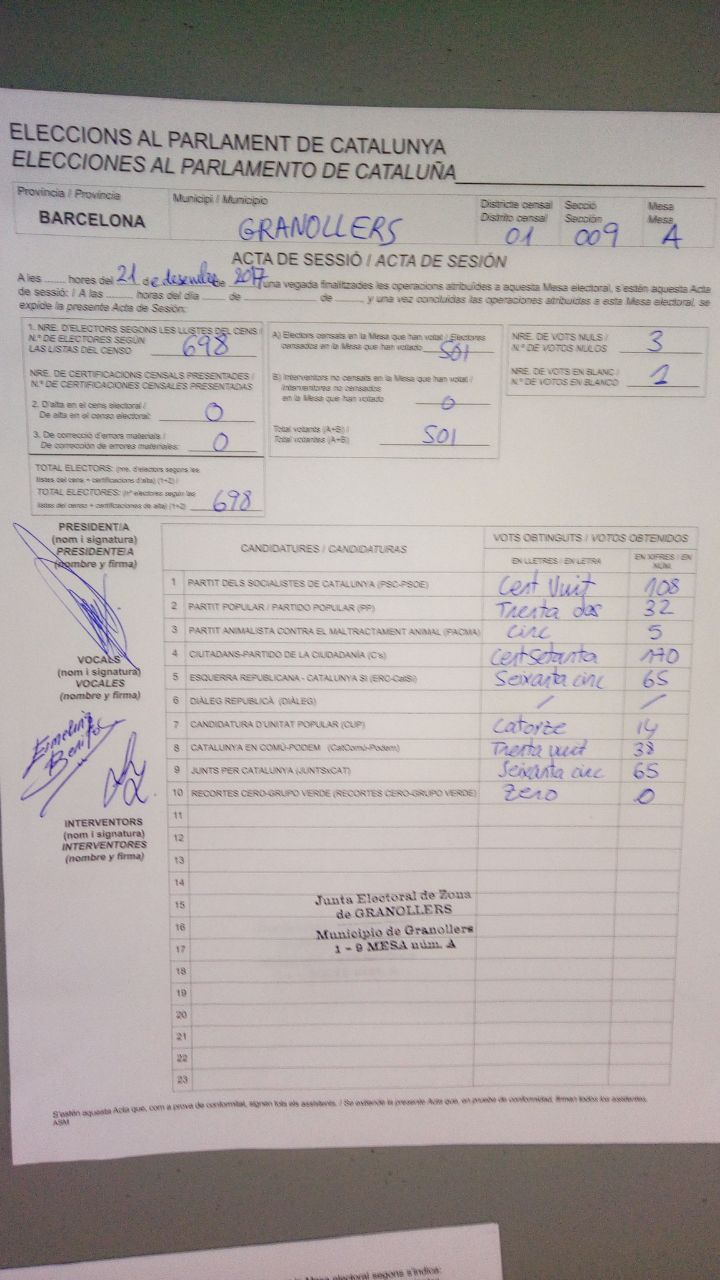 ELECCIONS AL PARLAMENT DE CATALUNYA
ELECCIONES AL PARLAMENTO DE CATALUÑA
Provincia / Provincia
BARCELONA
Municipi / Municipio
GRANOLLERS
Districte censal
Distrito censal
01
Secció
Sección
009
Mesa
Mesa
A
ACTA DE SESSIÓ / ACTA DE SESIÓN
A les ...... hores del 21 de desembre de 2017 una vegada finalitzades les operacions atribuïdes a aquesta Mesa electoral, s'estén aquesta Acta
de sessió: / A las ...... horas del día ...... de ...... de ...... y una vez concluidas las operaciones atribuidas a esta Mesa electoral, se
expide la presente Acta de Sesión:
1. NRE. D'ELECTORS SEGONS LES LLISTES DEL CENS /
N.º DE ELECTORES SEGÚN
LAS LISTAS DEL CENSO
698
NRE. DE CERTIFICACIONS CENSALS PRESENTADES /
N.º DE CERTIFICACIONES CENSALES PRESENTADAS
2. D'alta en el cens electoral /
De alta en el censo electoral:
0
3. De correcció d'errors materials /
De corrección de errores materiales:
0
TOTAL ELECTORS: (nre. d'electors segons les
llistes del cens + certificacions d'alta) (1+2) /
TOTAL ELECTORES: (nº electores según las
listas del censo + certificaciones de alta) (1+2)
698
A) Electors censats en la Mesa que han votat / Electores
censados en la Mesa que han votado
501
B) Interventors no censats en la Mesa que han votat /
Interventores no censados
en la Mesa que han votado
0
Total votants (A+B) /
Total votantes (A+B)
501
NRE. DE VOTS NULS /
N.º DE VOTOS NULOS
3
NRE. DE VOTS EN BLANC /
N.º DE VOTOS EN BLANCO
1
PRESIDENT/A
(nom i signatura)
PRESIDENTE/A
(nombre y firma)
VOCALS
(nom i signatura)
VOCALES
(nombre y firma)
INTERVENTORS
(nom i signatura)
INTERVENTORES
(nombre y firma)
CANDIDATURES / CANDIDATURAS
VOTS OBTINGUTS / VOTOS OBTENIDOS
EN LLETRES / EN LETRA
EN XIFRES / EN NÚM.
1 PARTIT DELS SOCIALISTES DE CATALUNYA (PSC-PSOE) Cent Vuit 108
2 PARTIT POPULAR / PARTIDO POPULAR (PP) Trenta dos 32
3 PARTIT ANIMALISTA CONTRA EL MALTRACTAMENT ANIMAL (PACMA) cinc 5
4 CIUTADANS-PARTIDO DE LA CIUDADANÍA (C's) Cent Setanta 170
5 ESQUERRA REPUBLICANA - CATALUNYA SÍ (ERC-CatSí) Seixanta cinc 65
6 DIÀLEG REPUBLICÀ (DIÀLEG) / /
7 CANDIDATURA D'UNITAT POPULAR (CUP) Catorze 14
8 CATALUNYA EN COMÚ-PODEM (CatComú-Podem) Trenta vuit 38
9 JUNTS PER CATALUNYA (JUNTSxCAT) Seixanta cinc 65
10 RECORTES CERO-GRUPO VERDE (RECORTES CERO-GRUPO VERDE) Zero 0
11
12
13
14
15
16
17
18
19
20
21
22
23
Junta Electoral de Zona
de GRANOLLERS
Municipio de Granollers
1 - 9 MESA núm. A
S'estén aquesta Acta que, com a prova de conformitat, signen tots els assistents. / Se extiende la presente Acta que, en prueba de conformidad, firman todos los asistentes.
ASM
Mesa electoral segons s'indica: